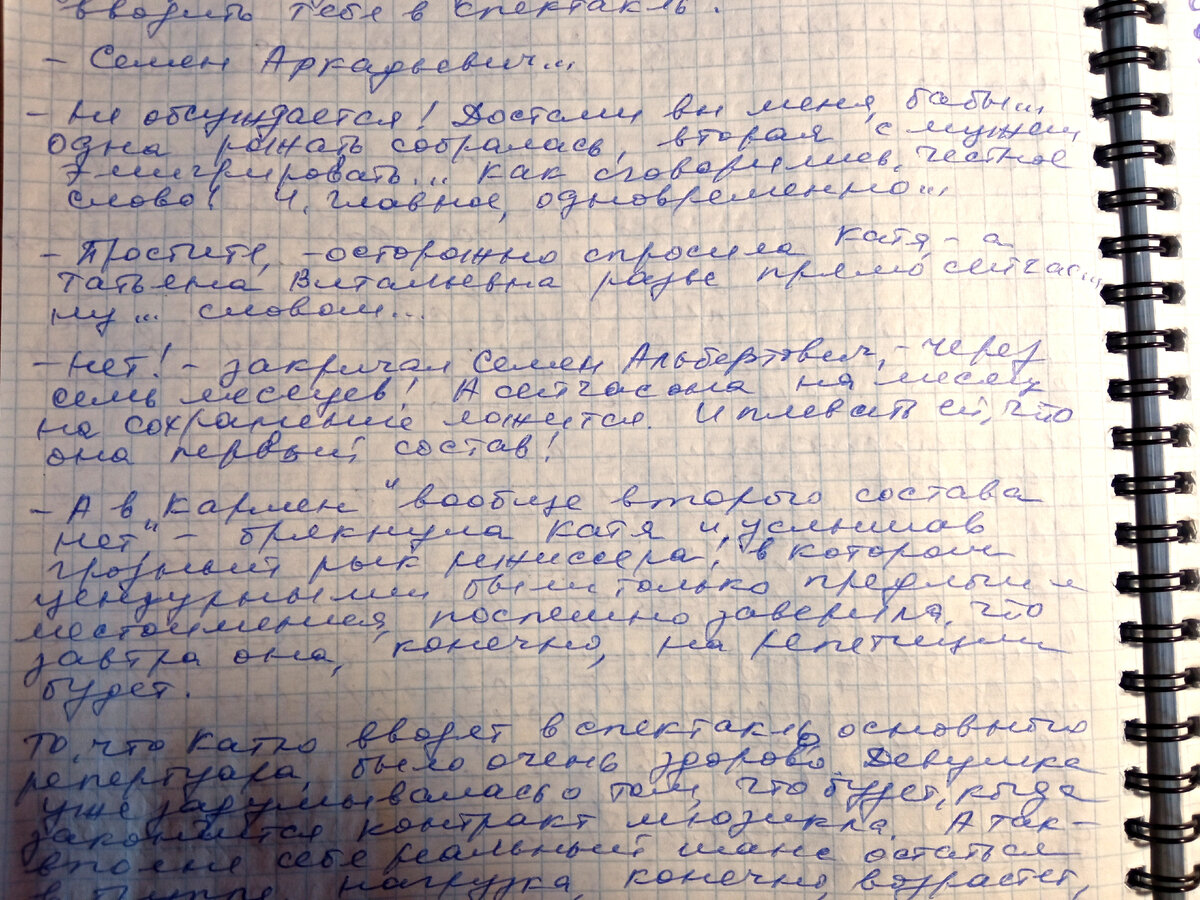 вводить тебя в спектакль.
- Семен Аркадьевич...
- Не обсуждается! Достали вы меня, бабы...
Одна рожать собралась, вторая с мужем
эмигрировать... как сговорились, честное
слово! И, главное, одновременно...
- Простите, - осторожно спросила Катя, - а
Татьяна Витальевна разве прямо сейчас...
ну... словом...
- Нет! - закричал Семен Альбертович, - через
семь месяцев! А сейчас она на месяц
на сохранение ложится. И плевать ей, что
она первый состав!
- А в "Кармен" вообще второго состава
нет, - брякнула Катя и, услышав
грозный рык режиссера, в котором
цензурными были только предлоги и
местоимения, поспешно заверила, что
завтра она, конечно, на репетиции
будет.
То, что Катю вводят в спектакль основного
репертуара, было очень здорово. Девушка
уже задумывалась о том, что будет, когда
закончится контракт мюзикла. А так -
вполне себе реальный шанс остаться
в труппе. нагрузка, конечно, возрастет,